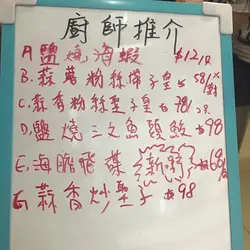 廚師推介
A. 鹽燒海蝦 $12/只
B. 蒜蓉粉絲帶子皇 58/对
C. 蒜香粉絲聖子皇 78/只
D. 鹽燒三文魚頭鮫 98
E. 海膽飛碟 新嘢 68
E. 蒜香炒聖子 98